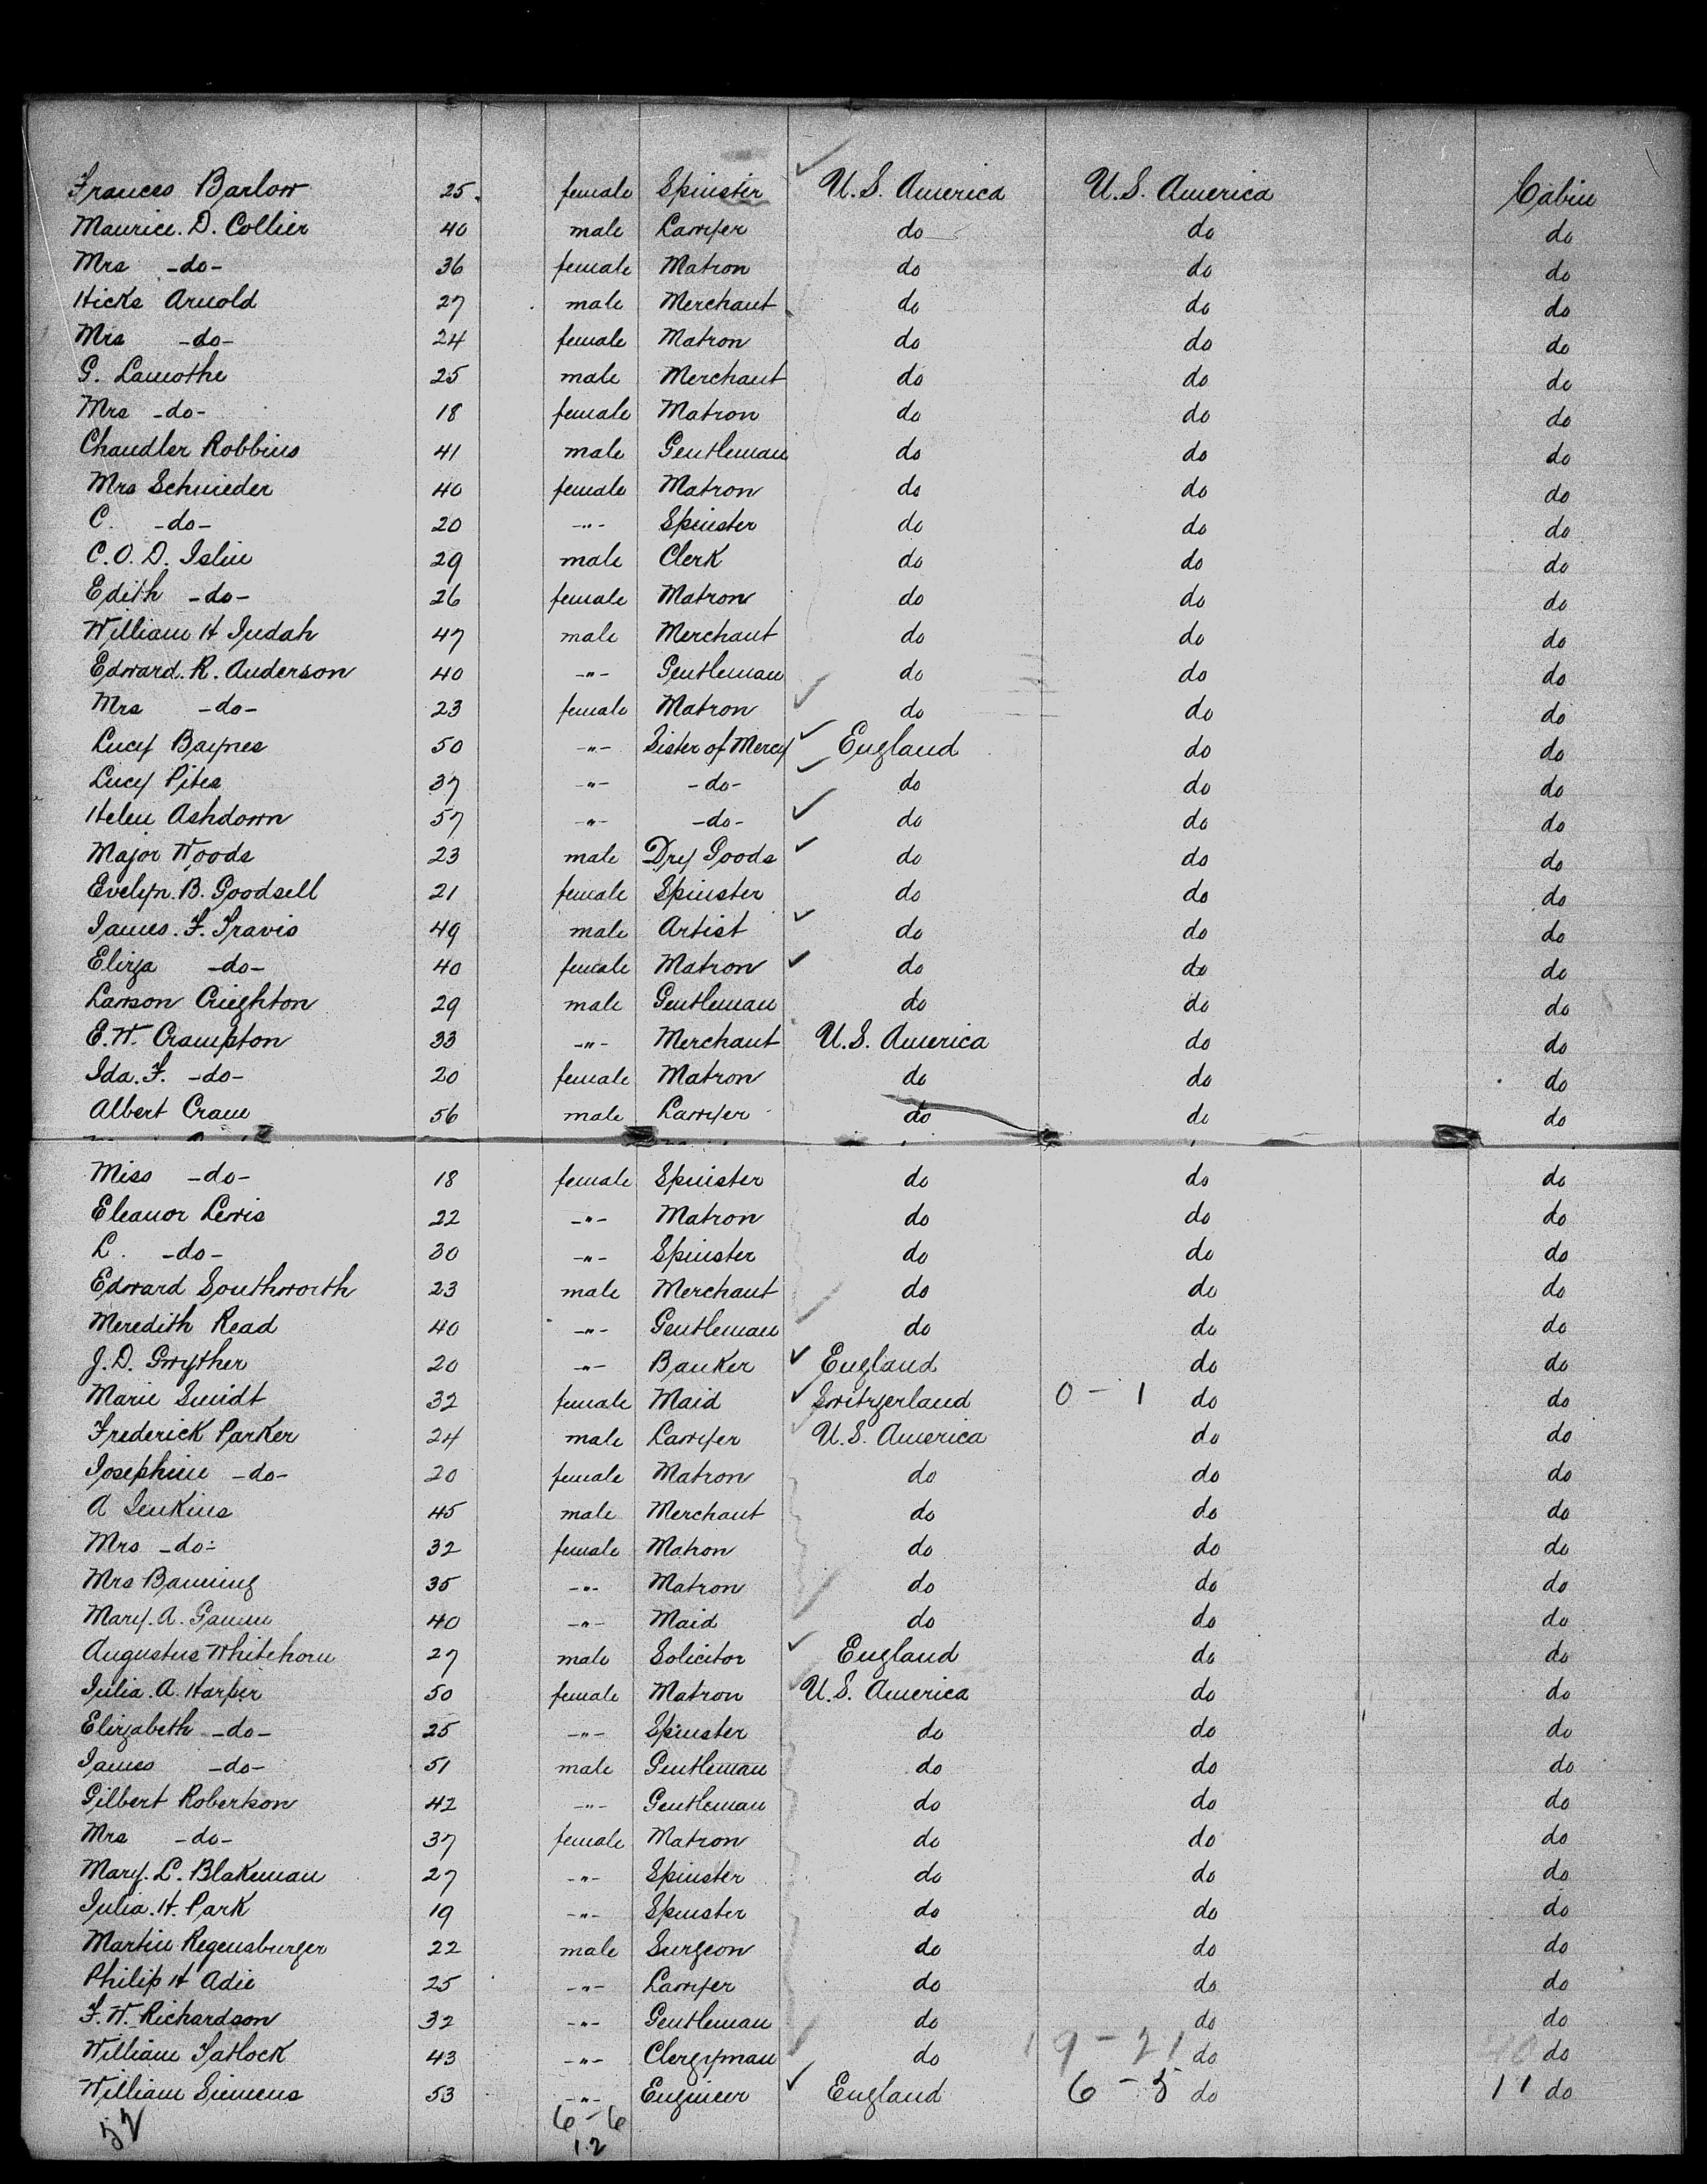 Frances Barlow 25. female Spinster U.S. America U.S. America Cabin
Maurice. D. Collier 40 male Lawyer do do do
Mrs -do- 36 female Matron do do do
Hicks Arnold 27 male Merchant do do do
Mrs -do- 24 female Matron do do do
G. Lamothe 25 male Merchant do do do
Mrs -do- 18 female Matron do do do
Chandler Robbins 41 male Gentleman do do do
Mrs Schnieder 40 female Matron do do do
C. -do- 20 -"- Spinster do do do
C. O. D. Islin 29 male Clerk do do do
Edith -do- 26 female Matron do do do
William H Judah 47 male Merchant do do do
Edward. R. Anderson 40 -"- Gentleman do do do
Mrs -do- 23 female Matron do do do
Lucy Baynes 50 -"- Sister of Mercy England do do
Lucy Pites 37 -"- -do- do do do
Helen Ashdown 57 -"- -do- do do do
Major Woods 23 male Dry Goods do do do
Evelyn. B. Goodsell 21 female Spinster do do do
James. F. Travis 49 male Artist do do do
Eliza -do- 40 female Matron do do do
Lawson Crieghton 29 male Gentleman do do do
E. W. Crampton 33 -"- Merchant U.S. America do do
Ida. F. -do- 20 female Matron do do do
Albert Cram 56 male Lawyer do do do
Miss -do- 18 female Spinster do do do
Eleanor Lewis 22 -"- Matron do do do
L. -do- 30 -"- Spinster do do do
Edward Southworth 23 male Merchant do do do
Meredith Read 40 -"- Gentleman do do do
J. D. Gwyther 20 -"- Banker England do do
Marie Smidt 32 female Maid Switzerland 0 - 1 do do
Frederick Parker 24 male Lawyer U.S. America do do
Josephine -do- 20 female Matron do do do
A Jenkins 45 male Merchant do do do
Mrs -do- 32 female Matron do do do
Mrs Banning 35 -"- Matron do do do
Mary. A. 40 -"- Maid do do do
Augustus Whitehorn 27 male Solicitor England do do
Julia. A. Harper 50 female Matron U.S. America do do
Elizabeth -do- 25 -"- Spinster do do do
James -do- 51 male Gentleman do do do
Gilbert Robertson 42 -"- Gentleman do do do
Mrs -do- 37 female Matron do do do
Mary. L. Blakeman 27 -"- Spinster do do do
Julia. H. Park 19 -"- Spinster do do do
Martin Regensburger 22 male Surgeon do do do
Philip H Adie 25 -"- Lawyer do do do
F. W. Richardson 32 -"- Gentleman do do do
William Tatlock 43 -"- Clergyman do 19 - 21 do 40 do
William Siemens 53 -"- Engineer England 6 - 5 do 11 do
52 6 - 6
12